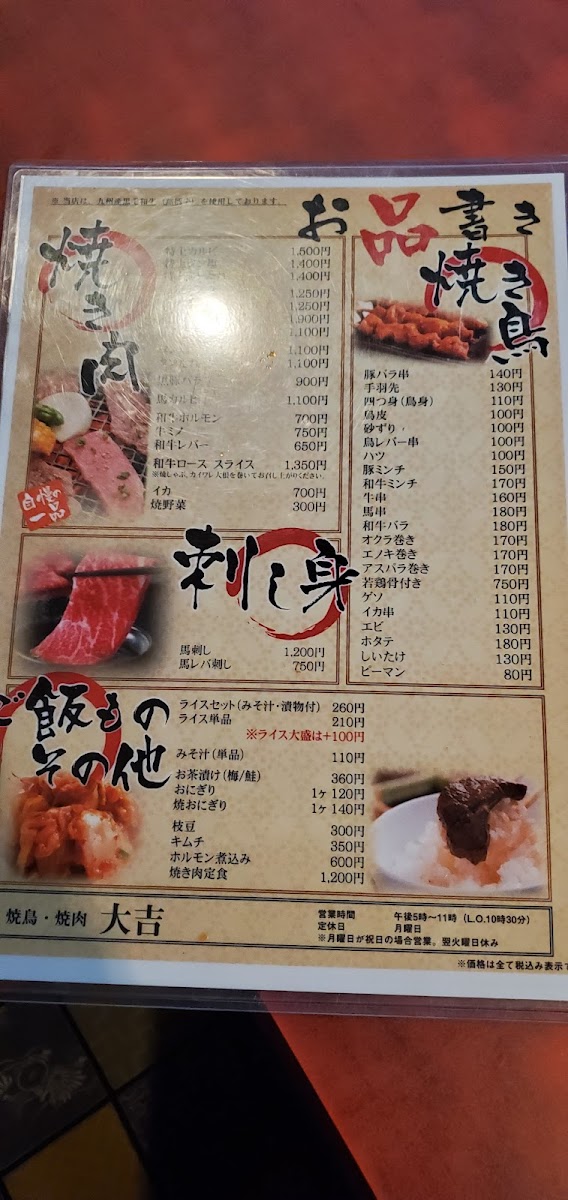 ※ 当店は、九州産黒毛和牛
を使用しております。
お品書き
焼き肉
特上カルビ 1,500円
1,400円
1,400円
1,250円
1,250円
1,900円
1,100円
1,100円
1,100円
黒豚バラ 900円
馬カルビ 1,100円
和牛ホルモン 700円
牛ミノ 750円
和牛レバー 650円
和牛ロース スライス 1,350円
※焼しゃぶ、カイワレ大根を巻いてお召し上がりください。
イカ 700円
焼野菜 300円
自慢の
一品
焼き鳥
豚バラ串 140円
手羽先 130円
四つ身(鳥身) 110円
鳥皮 100円
砂ずり 100円
鳥レバー串 100円
ハツ 100円
豚ミンチ 150円
和牛ミンチ 170円
牛串 160円
馬串 180円
和牛バラ 180円
オクラ巻き 170円
エノキ巻き 170円
アスパラ巻き 170円
若鶏骨付き 750円
ゲソ 110円
イカ串 110円
エビ 130円
ホタテ 180円
しいたけ 130円
ピーマン 80円
刺し身
馬刺し 1,200円
馬レバ刺し 750円
ご飯もの
その他
ライスセット(みそ汁・漬物付) 260円
ライス単品 210円
※ライス大盛は+100円
みそ汁(単品) 110円
お茶漬け(梅/鮭) 360円
おにぎり 1ヶ 120円
焼おにぎり 1ヶ 140円
枝豆 300円
キムチ 350円
ホルモン煮込み 600円
焼き肉定食 1,200円
焼鳥・焼肉 大吉
営業時間 午後5時〜11時(L.O.10時30分)
定休日 月曜日
※月曜日が祝日の場合営業。翌火曜日休み
※価格は全て税込み表示で